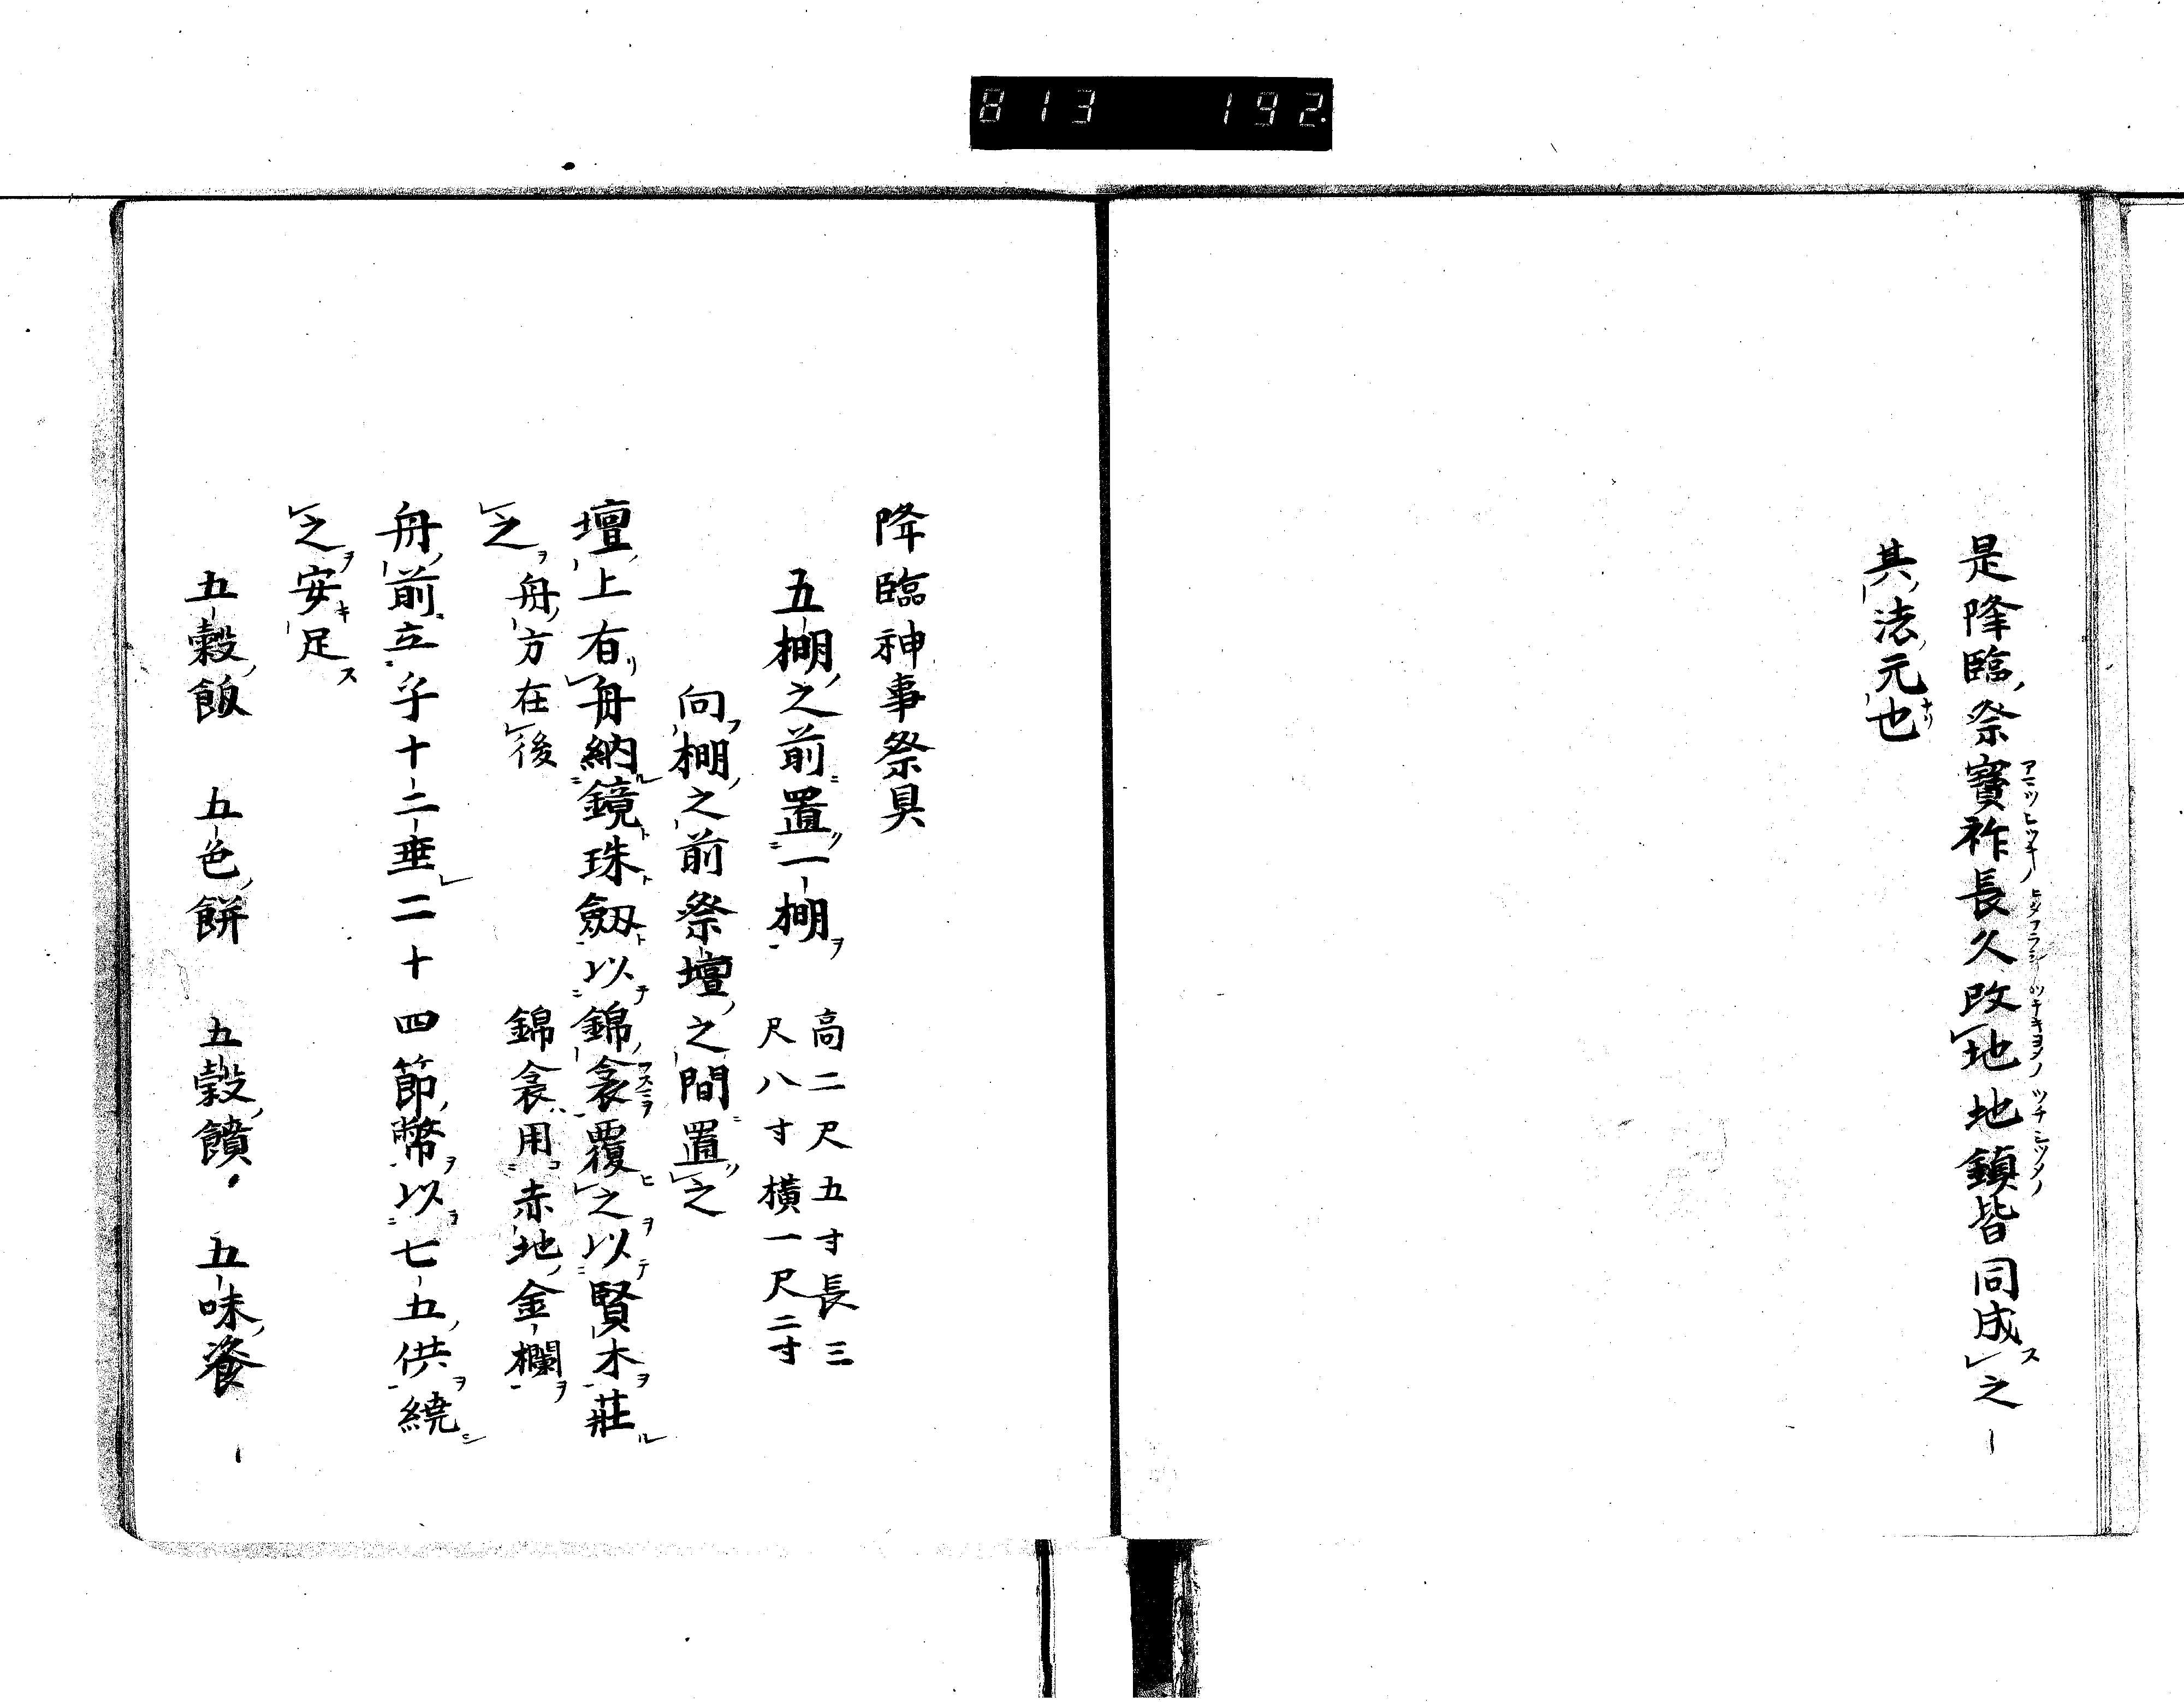 813 192.
是降臨祭寶祚長久改地地鎮皆同成之
其法元也
降臨神事祭具
五棚之前置一棚 高二尺五寸長三
尺八寸横一尺二寸
向棚之前祭壇之間置之
壇上有舟納鏡珠劔以錦衾覆之以賢木莊
之 舟方在後 錦衾用赤地金欄
舟前立乎十二垂二十四節幣以七五供繞
之安足
五穀飯 五色餅 五穀饙 五味餈